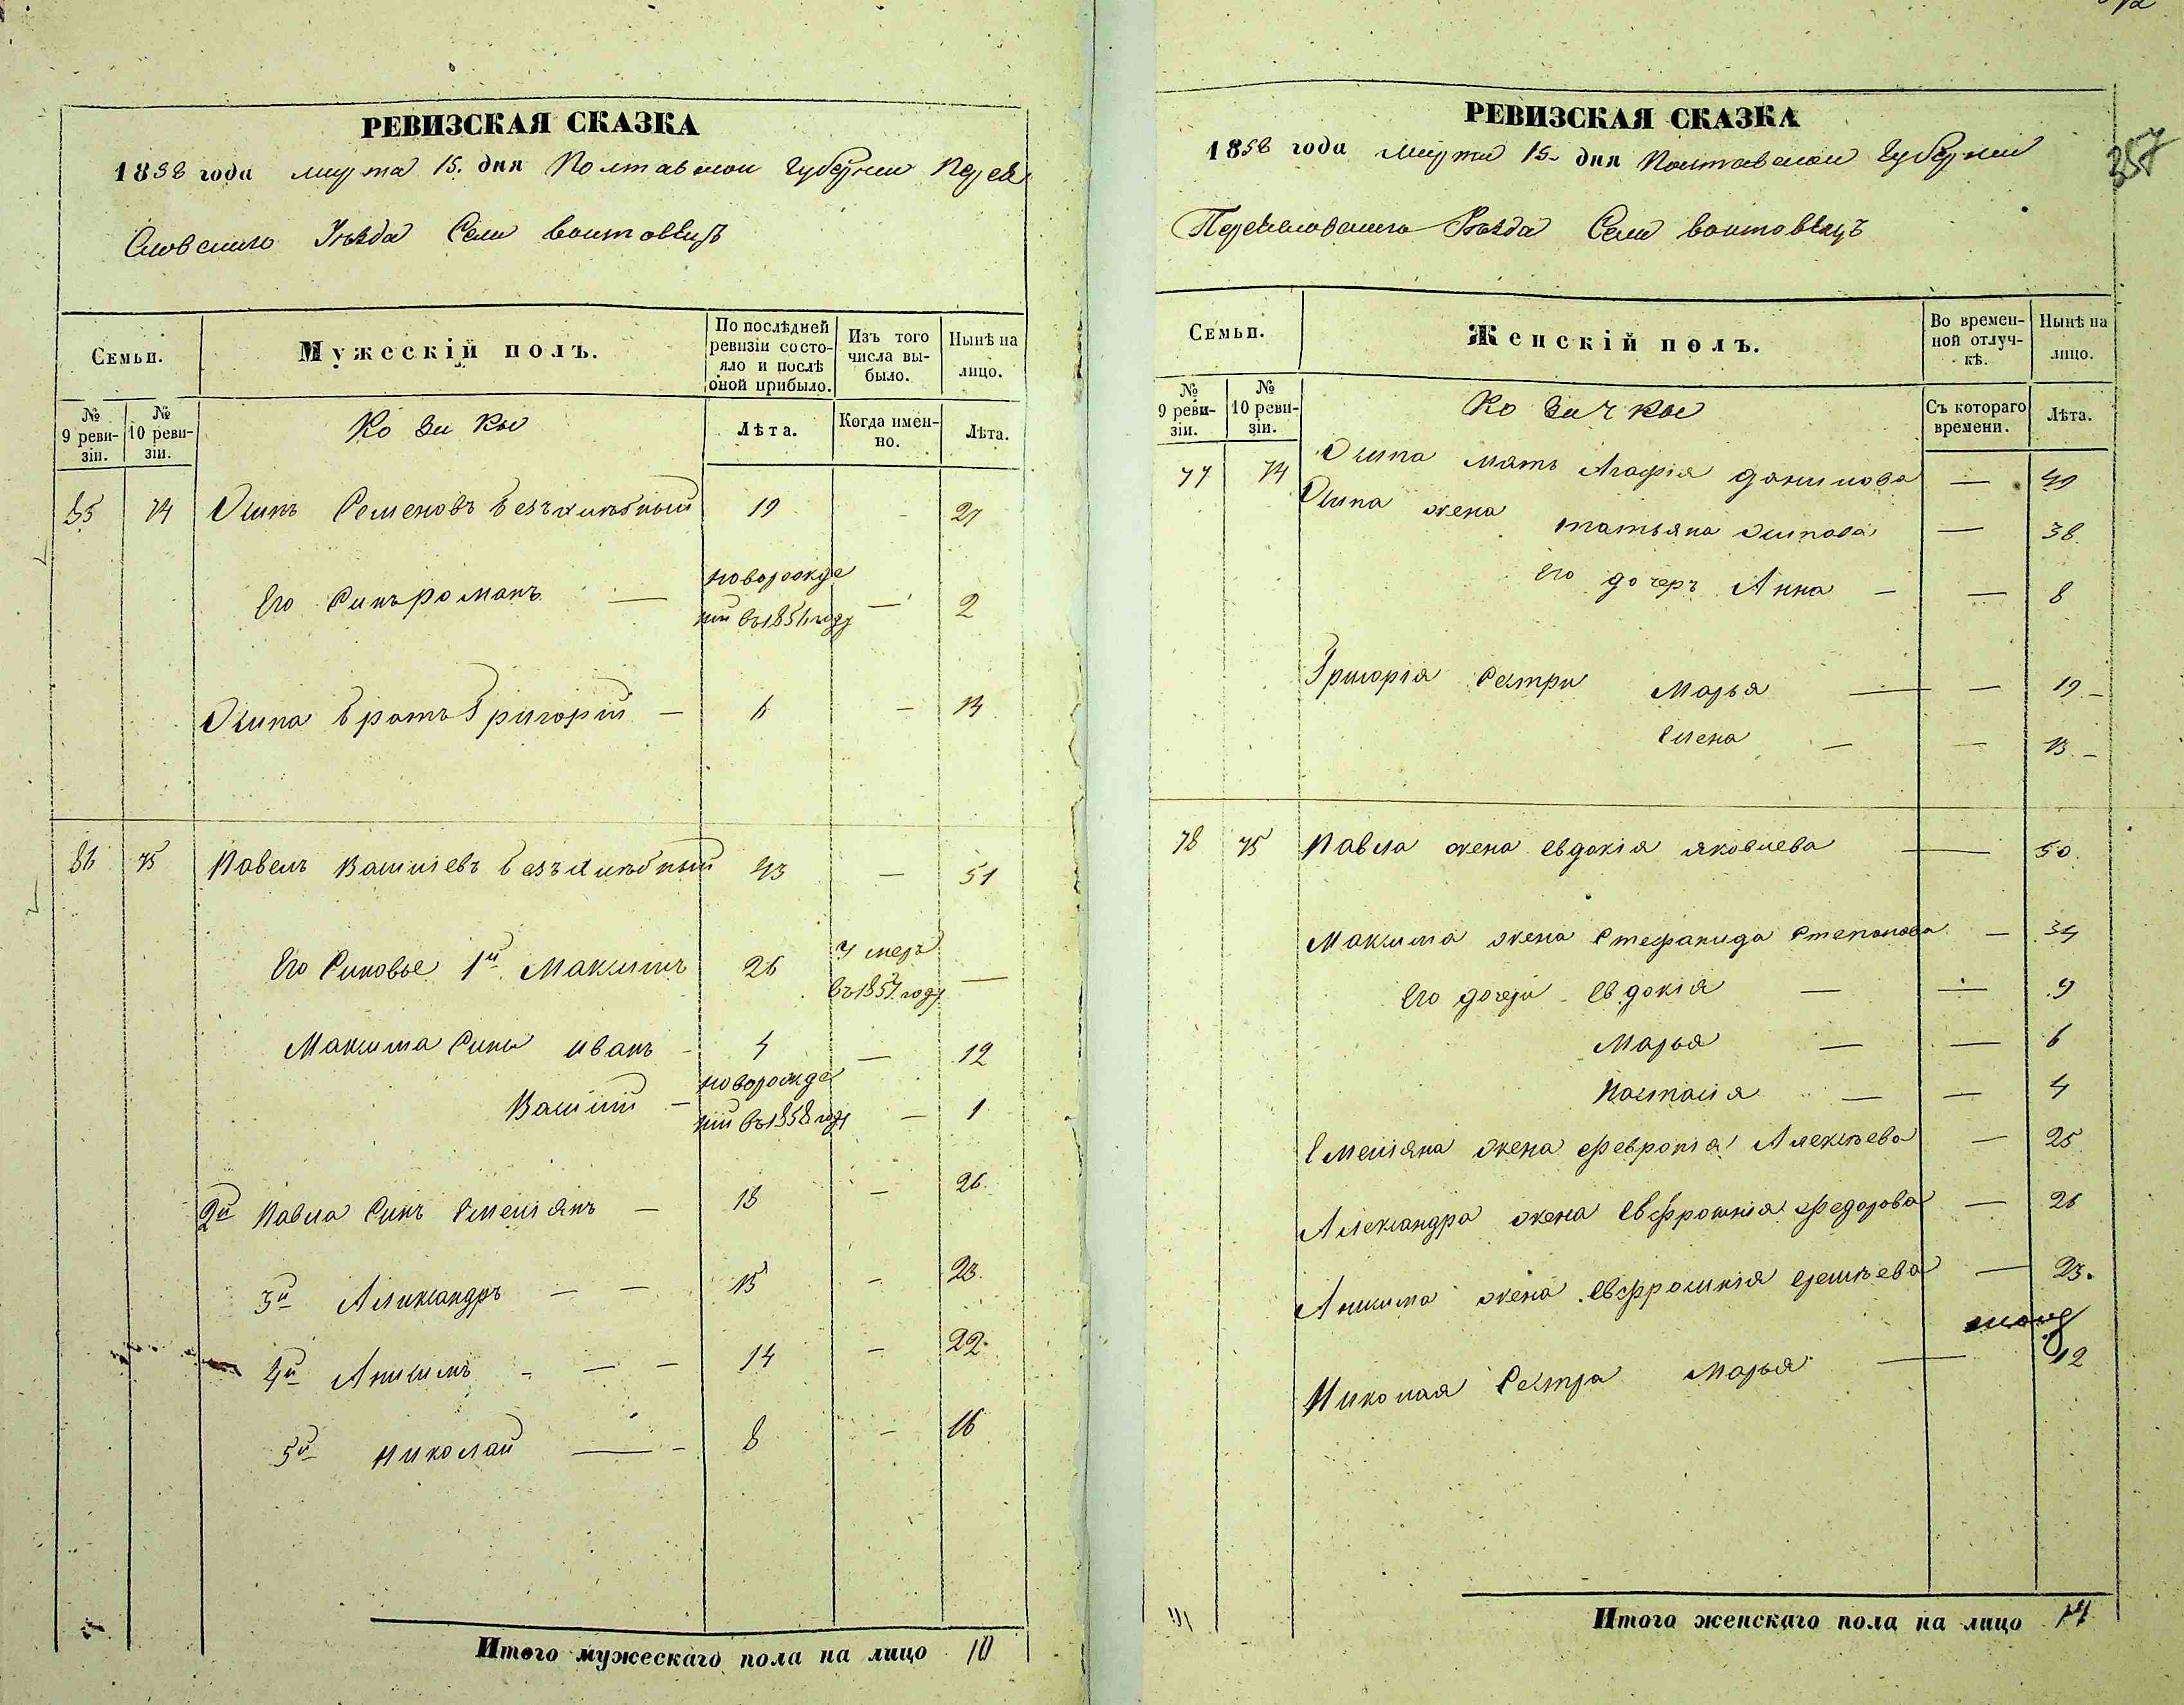 РЕВИЗСКАЯ СКАЗКА
1858 года марта 15. дня Полтавской Губернии Перея
Словского Уѣзда Села Войтовецъ
Семьи.
Мужескій полъ.
По послѣдней ревизіи состояло и послѣ оной прибыло.
Изъ того числа выбыло.
Нынѣ на лицо.
№ 9 ревизіи.
№ 10 ревизіи.
Козаки
Лѣта.
Когда именно.
Лѣта.
74 Осипъ Семеновъ Безъхлѣбный 19 - 27
Его Синъ Романъ — новорожде
ний въ 185 году — 2
Осипа братъ Григорий — 6 -
75 Павелъ Василевъ Безъхлѣбный 43 — 51
Его Синовье 1й Максимъ 26 Умеръ
въ 1857 году —
Максима Сины Иванъ - 4 — 12
Василий — новорожде
ний въ 1858 году — 1
2й Павла Синъ Емелиянъ — 18 — 26.
3й Александръ — — 15 - 23.
4й Анисимъ - — — 14 - 22.
5й Николай — - 8 - 16
Итого мужескаго пола на лицо 10
РЕВИЗСКАЯ СКАЗКА
357
1858 года марта 15. дня Полтавской Губернии
Переяславского Уѣзда Села Войтовецъ
Семьи.
Женскій полъ.
Во временной отлучкѣ.
Нынѣ на лицо.
№ 9 ревизіи.
№ 10 ревизіи.
Козачки
Съ котораго времени.
Лѣта.
77 74 Осипа мать Агафія Данилова —
Осипа жена Татьяна Осипова — 38.
Его дочеръ Анна — — 8
Григорія Сестри Марья — — 19 -
Елена — — 13. -
78 75 Павла жена Евдокія Яковлева — 50.
Максима жена Стефанида Степанова — 34
Его дочери Евдокія — — 9
Марья — — 6
Настасія — — 4
Емеліяна жена Февронія Алексѣева — 25
Александра жена Евфросинія Федорова — 26
Анисима жена Евфросинія — 23.
Николая Сестра Марья — 12
Итого женскаго пола на лицо 14